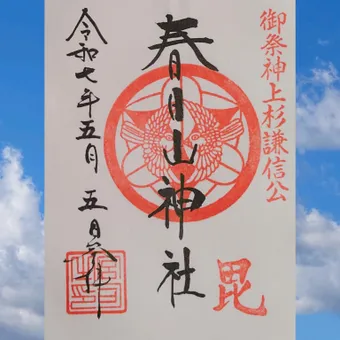 御祭神上杉謙信公
春日山神社
毘
令和七年五月五日参拝